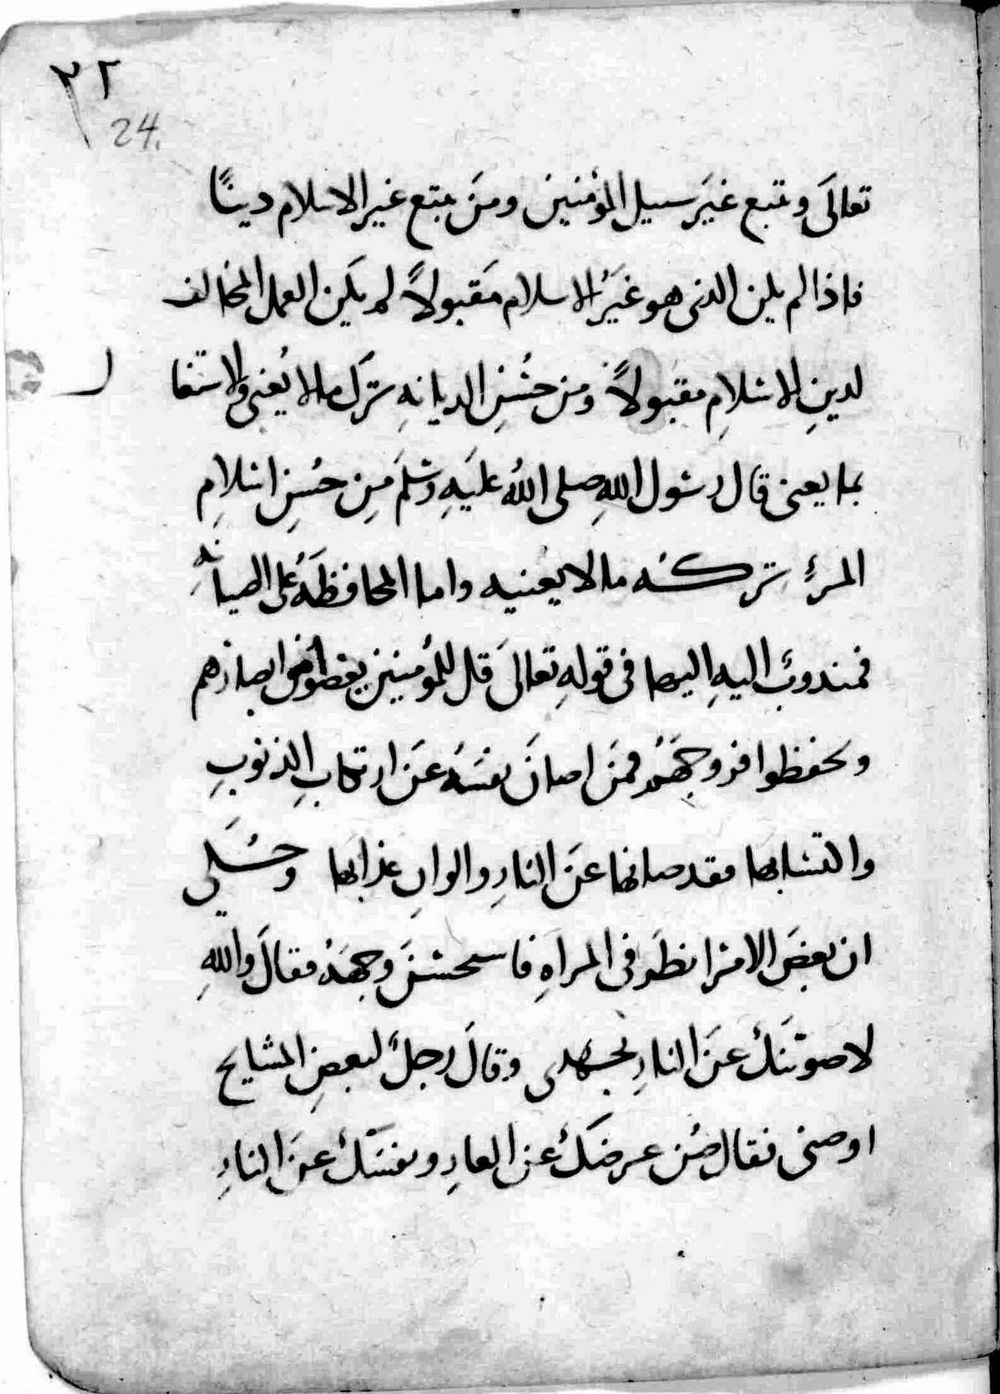 ٢٢
24.
تعالَى وتتبع غيَر سبيل المؤمنين ومنَ يبتع غير الاسلام دينًا
فاذا لم يكن الذى هو غيَرُ الاسلام مَقبولاً لم يكَن العمل المخالف
لدينِ الاسْلامِ مقبولاً ومن حُسْنِ الديانهِ تركَ مالا يُعنى والاشتغا
ل
بما يعنى قال رسُول اللهِ صلى اللهُ عليَهِ وسَلمَ مِن حُسِن اسْلامِ
المرءِ تركهُ مالا يعُنيه واما المحافظَهُ على الصيانهِ
فمندوبٌ اليهِ اليها فى قولهِ تعالىَ قل للمُؤمنين يغضوا من ابصارهم
ويحفظوا فروجهَمُ فمنَ اصانَ نفسَهُ عنَ ارتكابِ الذنوبِ
والتشابها فقد صانها عنَ النارِ والوانِ عذابها وحُسْكَى
ان بعضَ الامرا نظَر فى المراهِ فاستحسَنَ وجهَهُ فقالَ واللهِ
لاصوننَكَ عنَ النارِ بجهدى وقالَ رجلٌ لبعضِ المشايخ
اوصنى فقال صُن عرضكَ عن العارِ ونفسَكَ عنَ النارِ